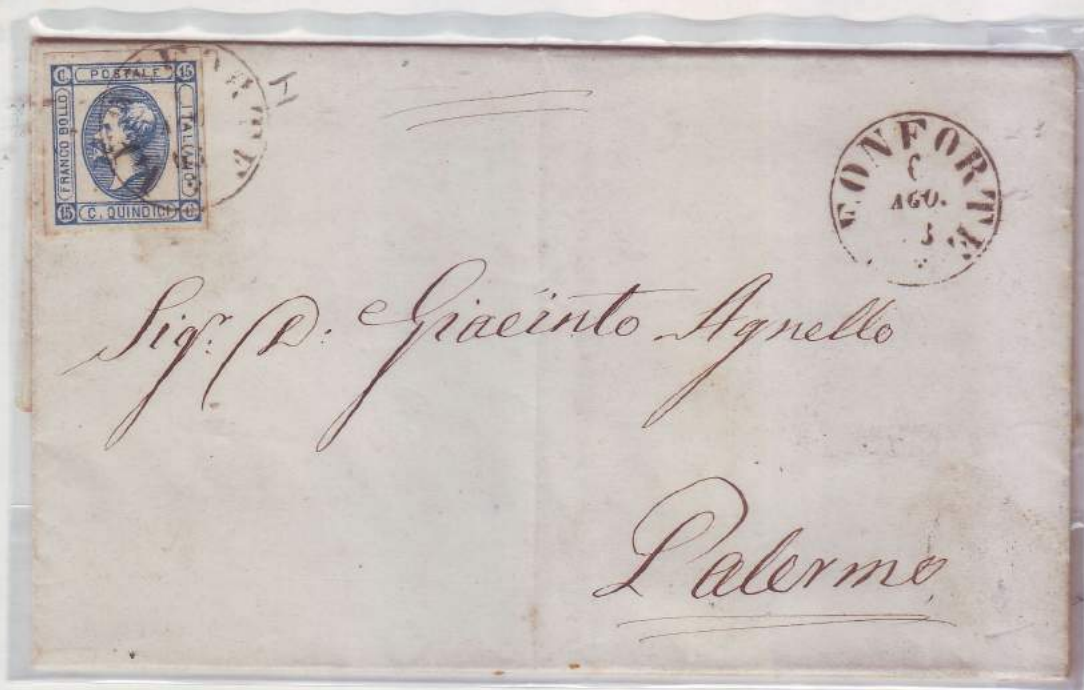 C. POSTALE 15
FRANCO BOLLO
ITALIANO
15 C. QUINDICI C.
AGO.
Sigr. D: Giacinto Agnello
Palermo